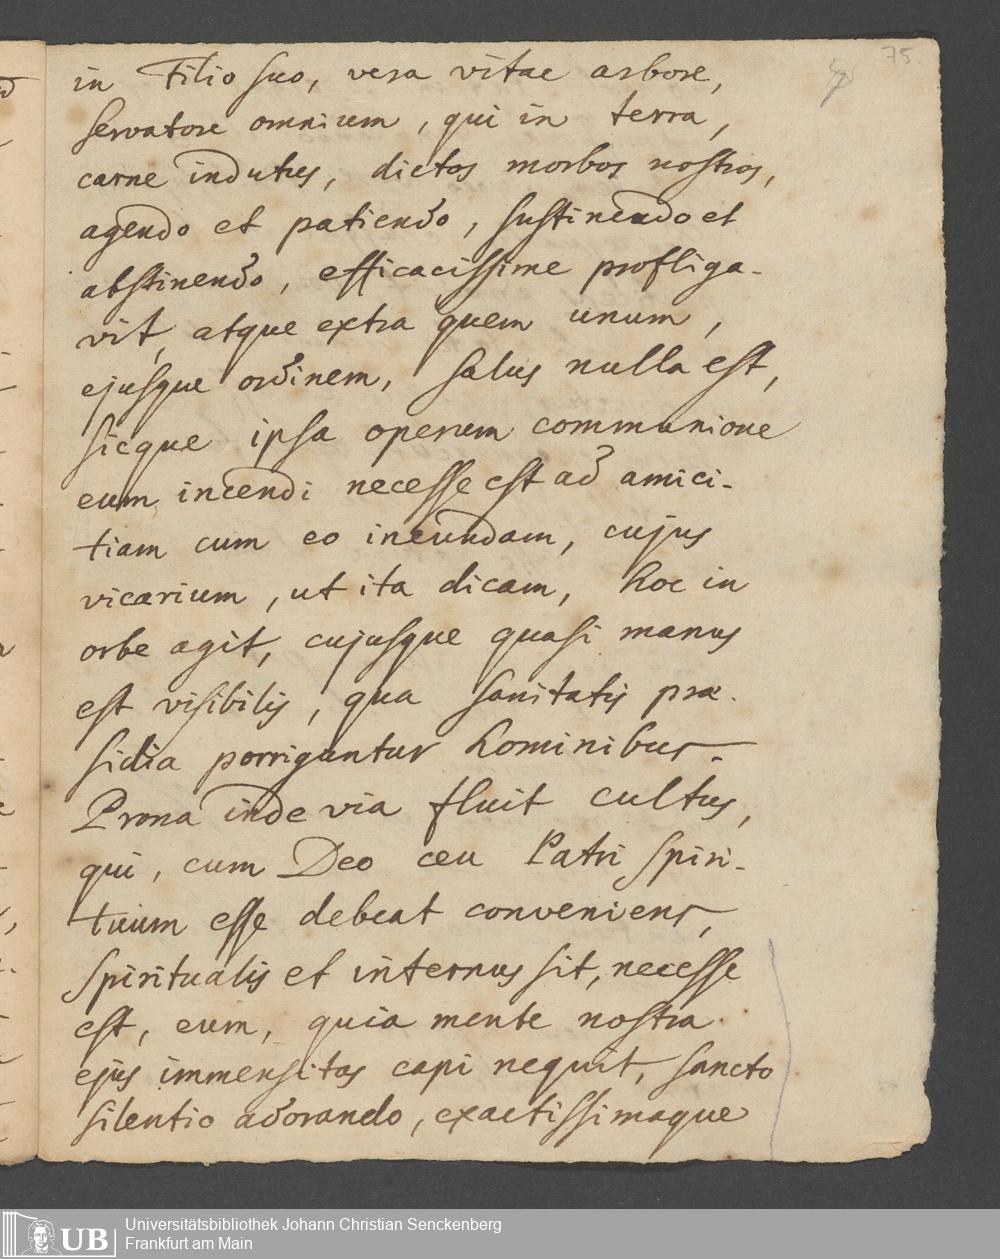 75.
in Filio suo, vera vitae arbore,
servatore omnium, qui in terra,
carne indutus, dictos morbos nostros,
agendo et patiendo, sustinendo et
abstinendo, efficacissime profliga-
vit, atque extra quem unum,
ejusque ordinem, salus nulla est,
sicque ipsa operum communione
eum incendi necesse est ad amici-
tiam cum eo ineundam, cujus
vicarium, ut ita dicam, hoc in
orbe agit, cujusque quasi manus
est visibilis, qua sanitatis prae-
sidia porriguntur hominibus.
Prona inde via fluit cultus,
qui, cum Deo ceu Patri Spiri-
tuum esse debeat conveniens,
spiritualis et internus sit, necesse
est, eum, quia mente nostra
ejus immensitas capi nequit, sancto
silentio adorando, exactissimaque
UB Universitätsbibliothek Johann Christian Senckenberg
Frankfurt am Main